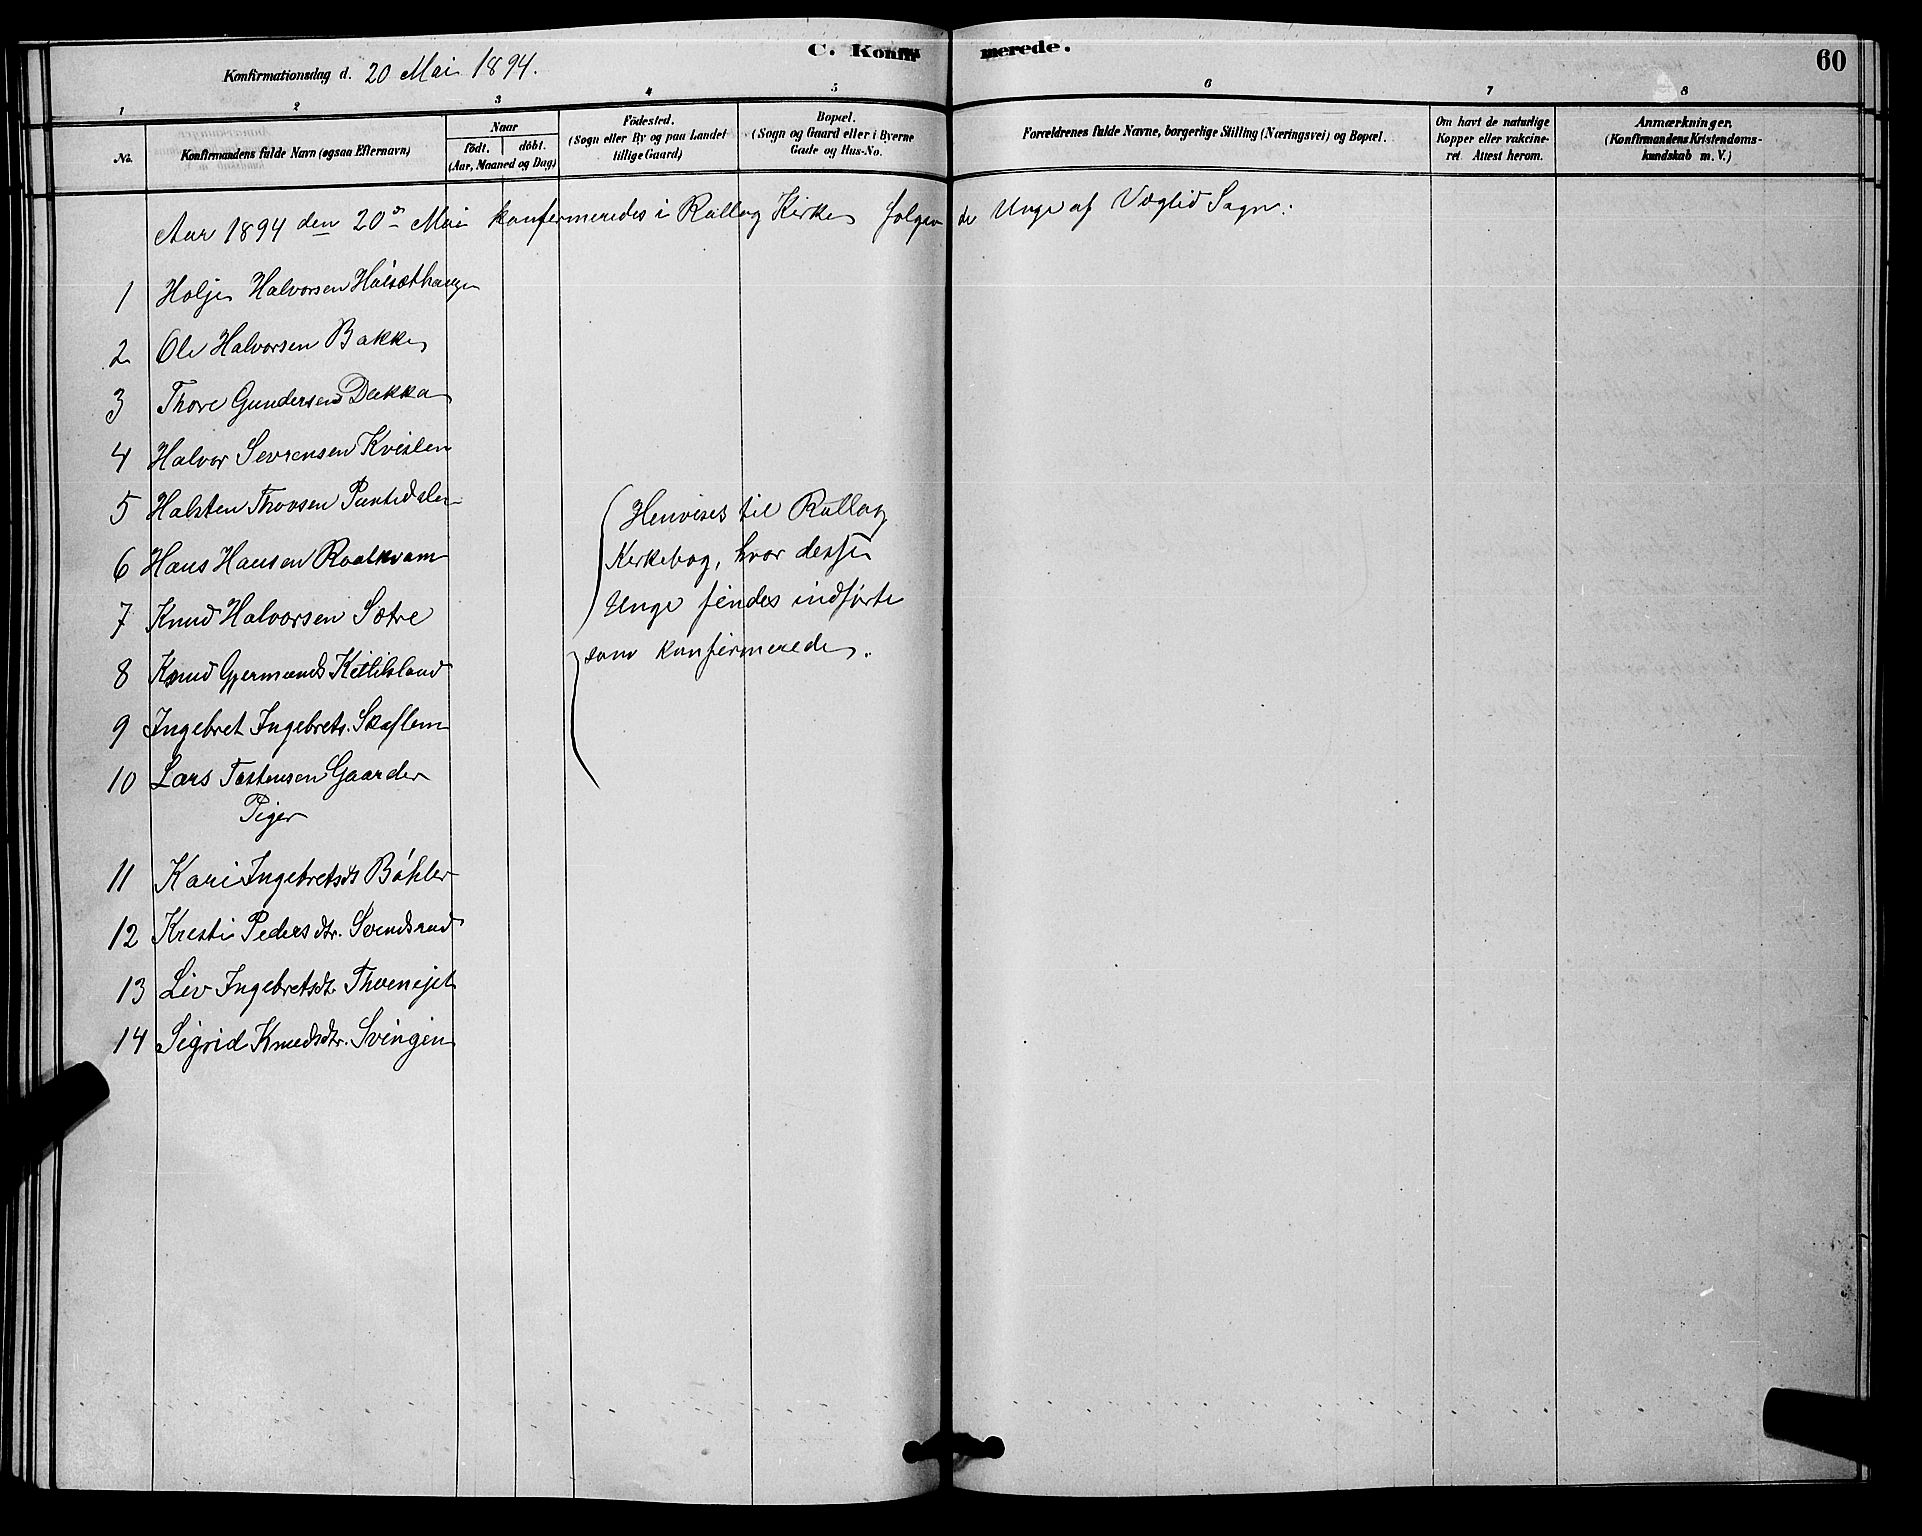 C. Konfirmerede.
60
Konfirmationsdag d. 20 Mai 1894.
1 2 3 4 5 6 7 8
No.
Konfirmandens fulde Navn (ogsaa Efternavn)
Naar
födt. döbt.
(Aar, Maaned og Dag)
Födested.
(Sogn eller By og paa Landet
tillige Gaard)
Bopæl.
(Sogn og Gaard eller i Byerne
Gade og Hus-No.
Forældrenes fulde Navne, borgerlige Stilling (Næringsvei) og Bopæl.
Om havt de naturlige
Kopper eller vakcine-
ret Attest herom.
Anmærkninger,
(Konfirmandens Kristendoms-
kundskab m. V.)
Aar 1894 den 20de Mai konfirmeredes i Rollag Kirke følgende Unge af Væglid Sogn:
1 Holje Halvorsen
2 Ole Halvorsen Bakke
3 Thore Gundersen Dokka
4 Halvor Sevrensen Kvislen
5 Halsten Thorsen
6 Hans Hansen Raakvam
7 Knud Halvorsen Sætre
8 Knud Gjermunds Kittilsland
9 Ingebret Ingebrets. Skaflem
10 Lars Tostensen Gaarder
Piger
11 Kari Ingebretsdt Bøhler
12 Kristi Pedersdtr. Svendsrud
13 Liv Ingebretsdt.
14 Sigrid Knudsdtr. Svingen
Henvises til Rollag
Kirkebog, hvor disse
Unge findes indførte
som konfirmerede.